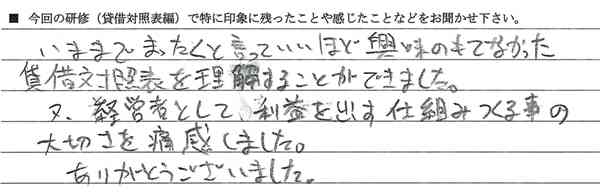 ■ 今回の研修（貸借対照表編）で特に印象に残ったことや感じたことなどをお聞かせ下さい。
いままでまったくと言っていいほど興味のもてなかった
貸借対照表を理解することができました。
又、経営者として、利益を出す仕組みつくる事の
大切さを痛感しました。
ありがとうございました。